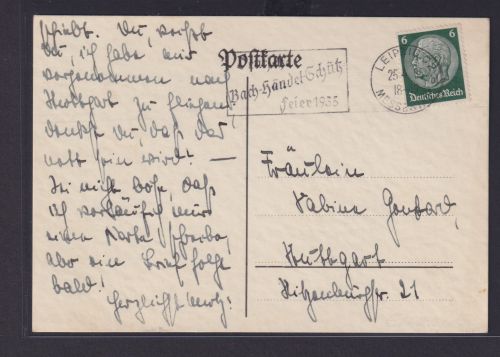 schiebt. Du, weißt
Du, ich habe mir
vorgenommen nach
Stuttgart zu fliegen,
denkst Du, daß das
nett sein wird? –
Sei nicht böse, daß
ich vorläufig nur
eine Karte schreibe,
aber ein Brief folgt
bald!
Herzlichst
Postkarte
Bach-Händel-Schütz
Feier 1935
LEIPZIG
25.
18-
MESSESTADT
6 6
Deutsches Reich
Fräulein
Sabine
Stuttgart
Hitzenburgstr. 21